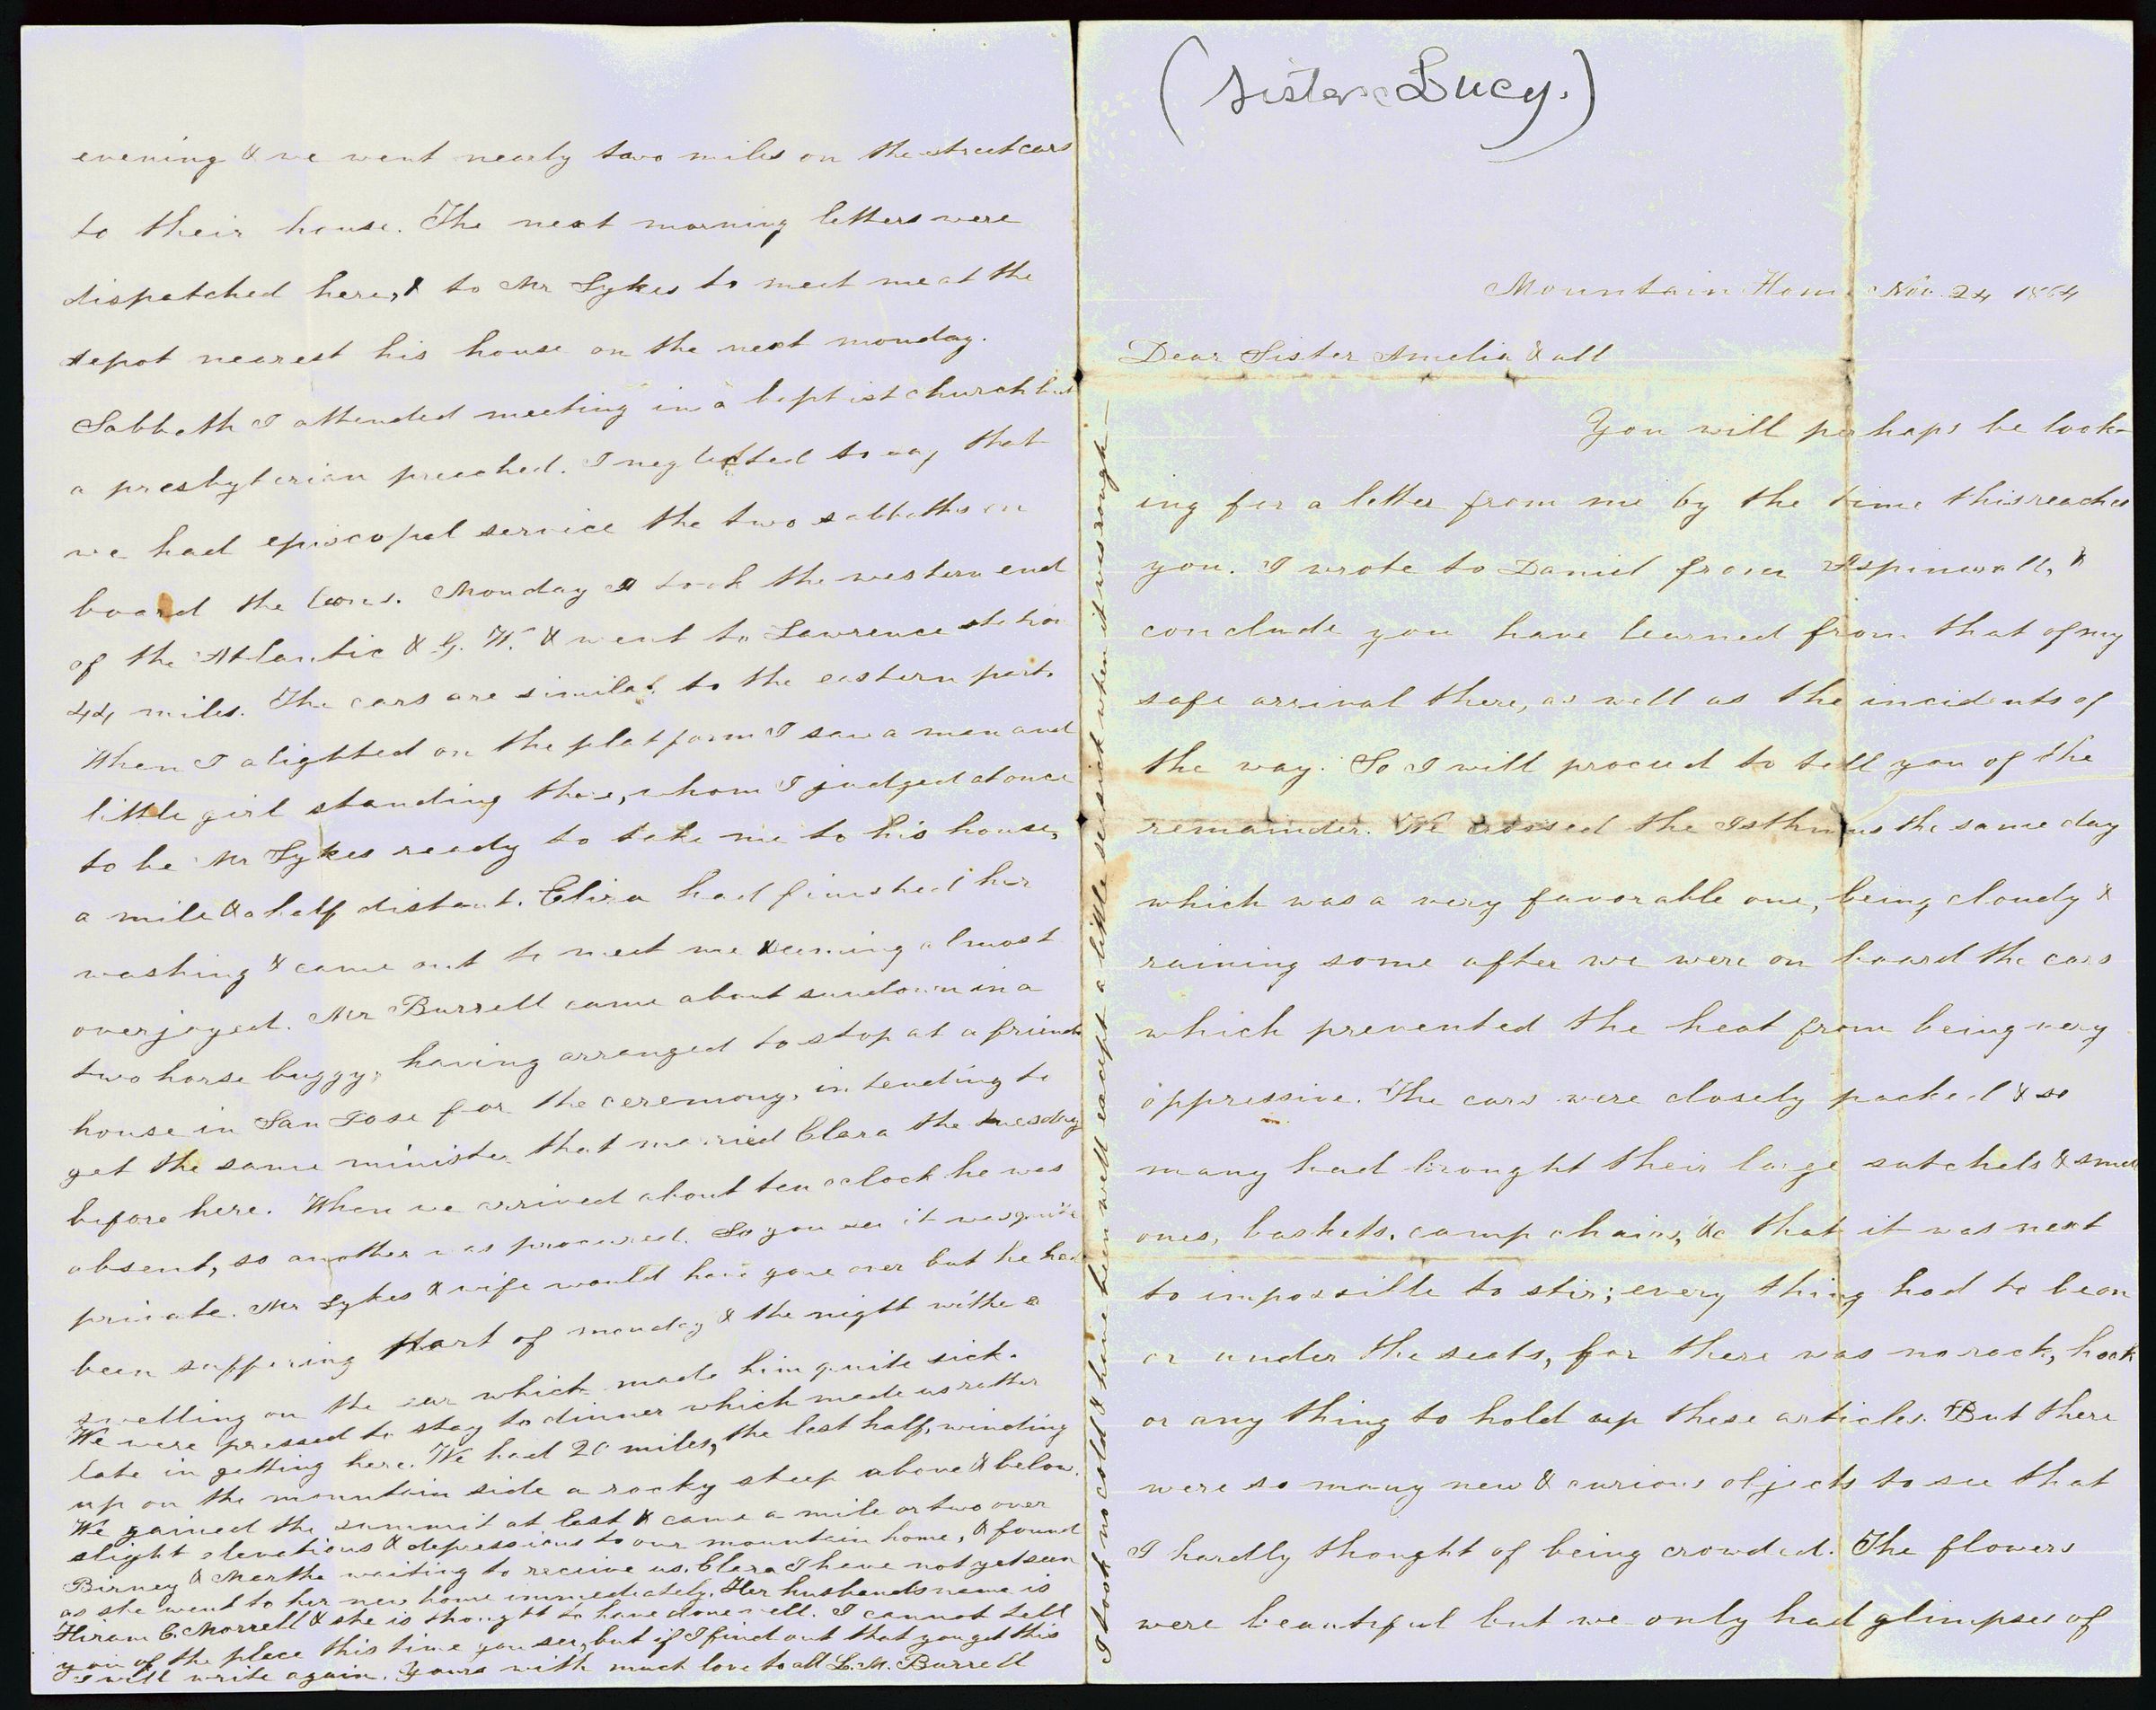 (Sister Lucy.)
Mountain Home Nov. 24 1864
Dear Sister Amelia & all
You will perhaps be look-
ing for a letter from me by the time this reaches
you. I wrote to Daniel from Aspinwall, &
conclude you have learned from that of my
safe arrival there, as well as the incidents of
the way. So I will proceed to tell you of the
remainder. We crossed the Isthmus the same day
which was a very favorable one, being cloudy &
raining some after we were on board the cars
which prevented the heat from being very
oppressive. The cars were closely packed & so
many had brought their large satchels & small
ones, baskets, camp chairs, &c that it was next
to impossible to stir; every thing had to be on
or under the seats, for there was no rack, hook
or any thing to hold up these articles. But there
were so many new & curious objects to see that
I hardly thought of being crowded. The flowers
were beautiful but we only had glimpses of
evening & we went nearly two miles on the street cars
to their house. The next morning letters were
dispatched here, & to Mr Sykes to meet me at the
depot nearest his house on the next monday.
Sabbath I attended meeting in a baptist church but
a presbyterian preached. I neglected to say that
we had episcopal service the two sabbaths on
board the boats. Monday I took the western end
of the Atlantic & G. W. & went to Lawrence station
44 miles. The cars are similar to the eastern part.
When I alighted on the platform I saw a man and
little girl standing there, whom I judged at once
to be Mr Sykes ready to take me to his house,
a mile & a half distant. Eliza had finished her
washing & came out to meet me seeming almost
overjoyed. Mr Burrell came about sundown in a
two horse buggy, having arranged to stop at a friends
house in San Jose for the ceremony, intending to
get the same minister that married Clara the tuesday
before here. When we arrived about ten oclock he was
absent, so another was procured. So you see it was quite
private. Mr Sykes & wife would have gone over but he had
been suffering part of monday & the night with a
swelling on the ear which made him quite sick.
We were pressed to stay to dinner which made us rather
late in getting here. We had 20 miles, the last half, winding
up on the mountain side a rocky steep above & below.
We gained the summit at last & came a mile or two over
slight elevations & depressions to our mountain home, & found
Birney & Martha waiting to receive us. Clara I have not yet seen
as she went to her new home immediately. Her husbands name is
Hiram C. Morrell & she is thought to have done well. I cannot tell
you of the place this time you see, but if I find out that you get this
I will write again. Yours with much love to all L. M. Burrell
I took no cold & have been well except a little seasick when it was rough—